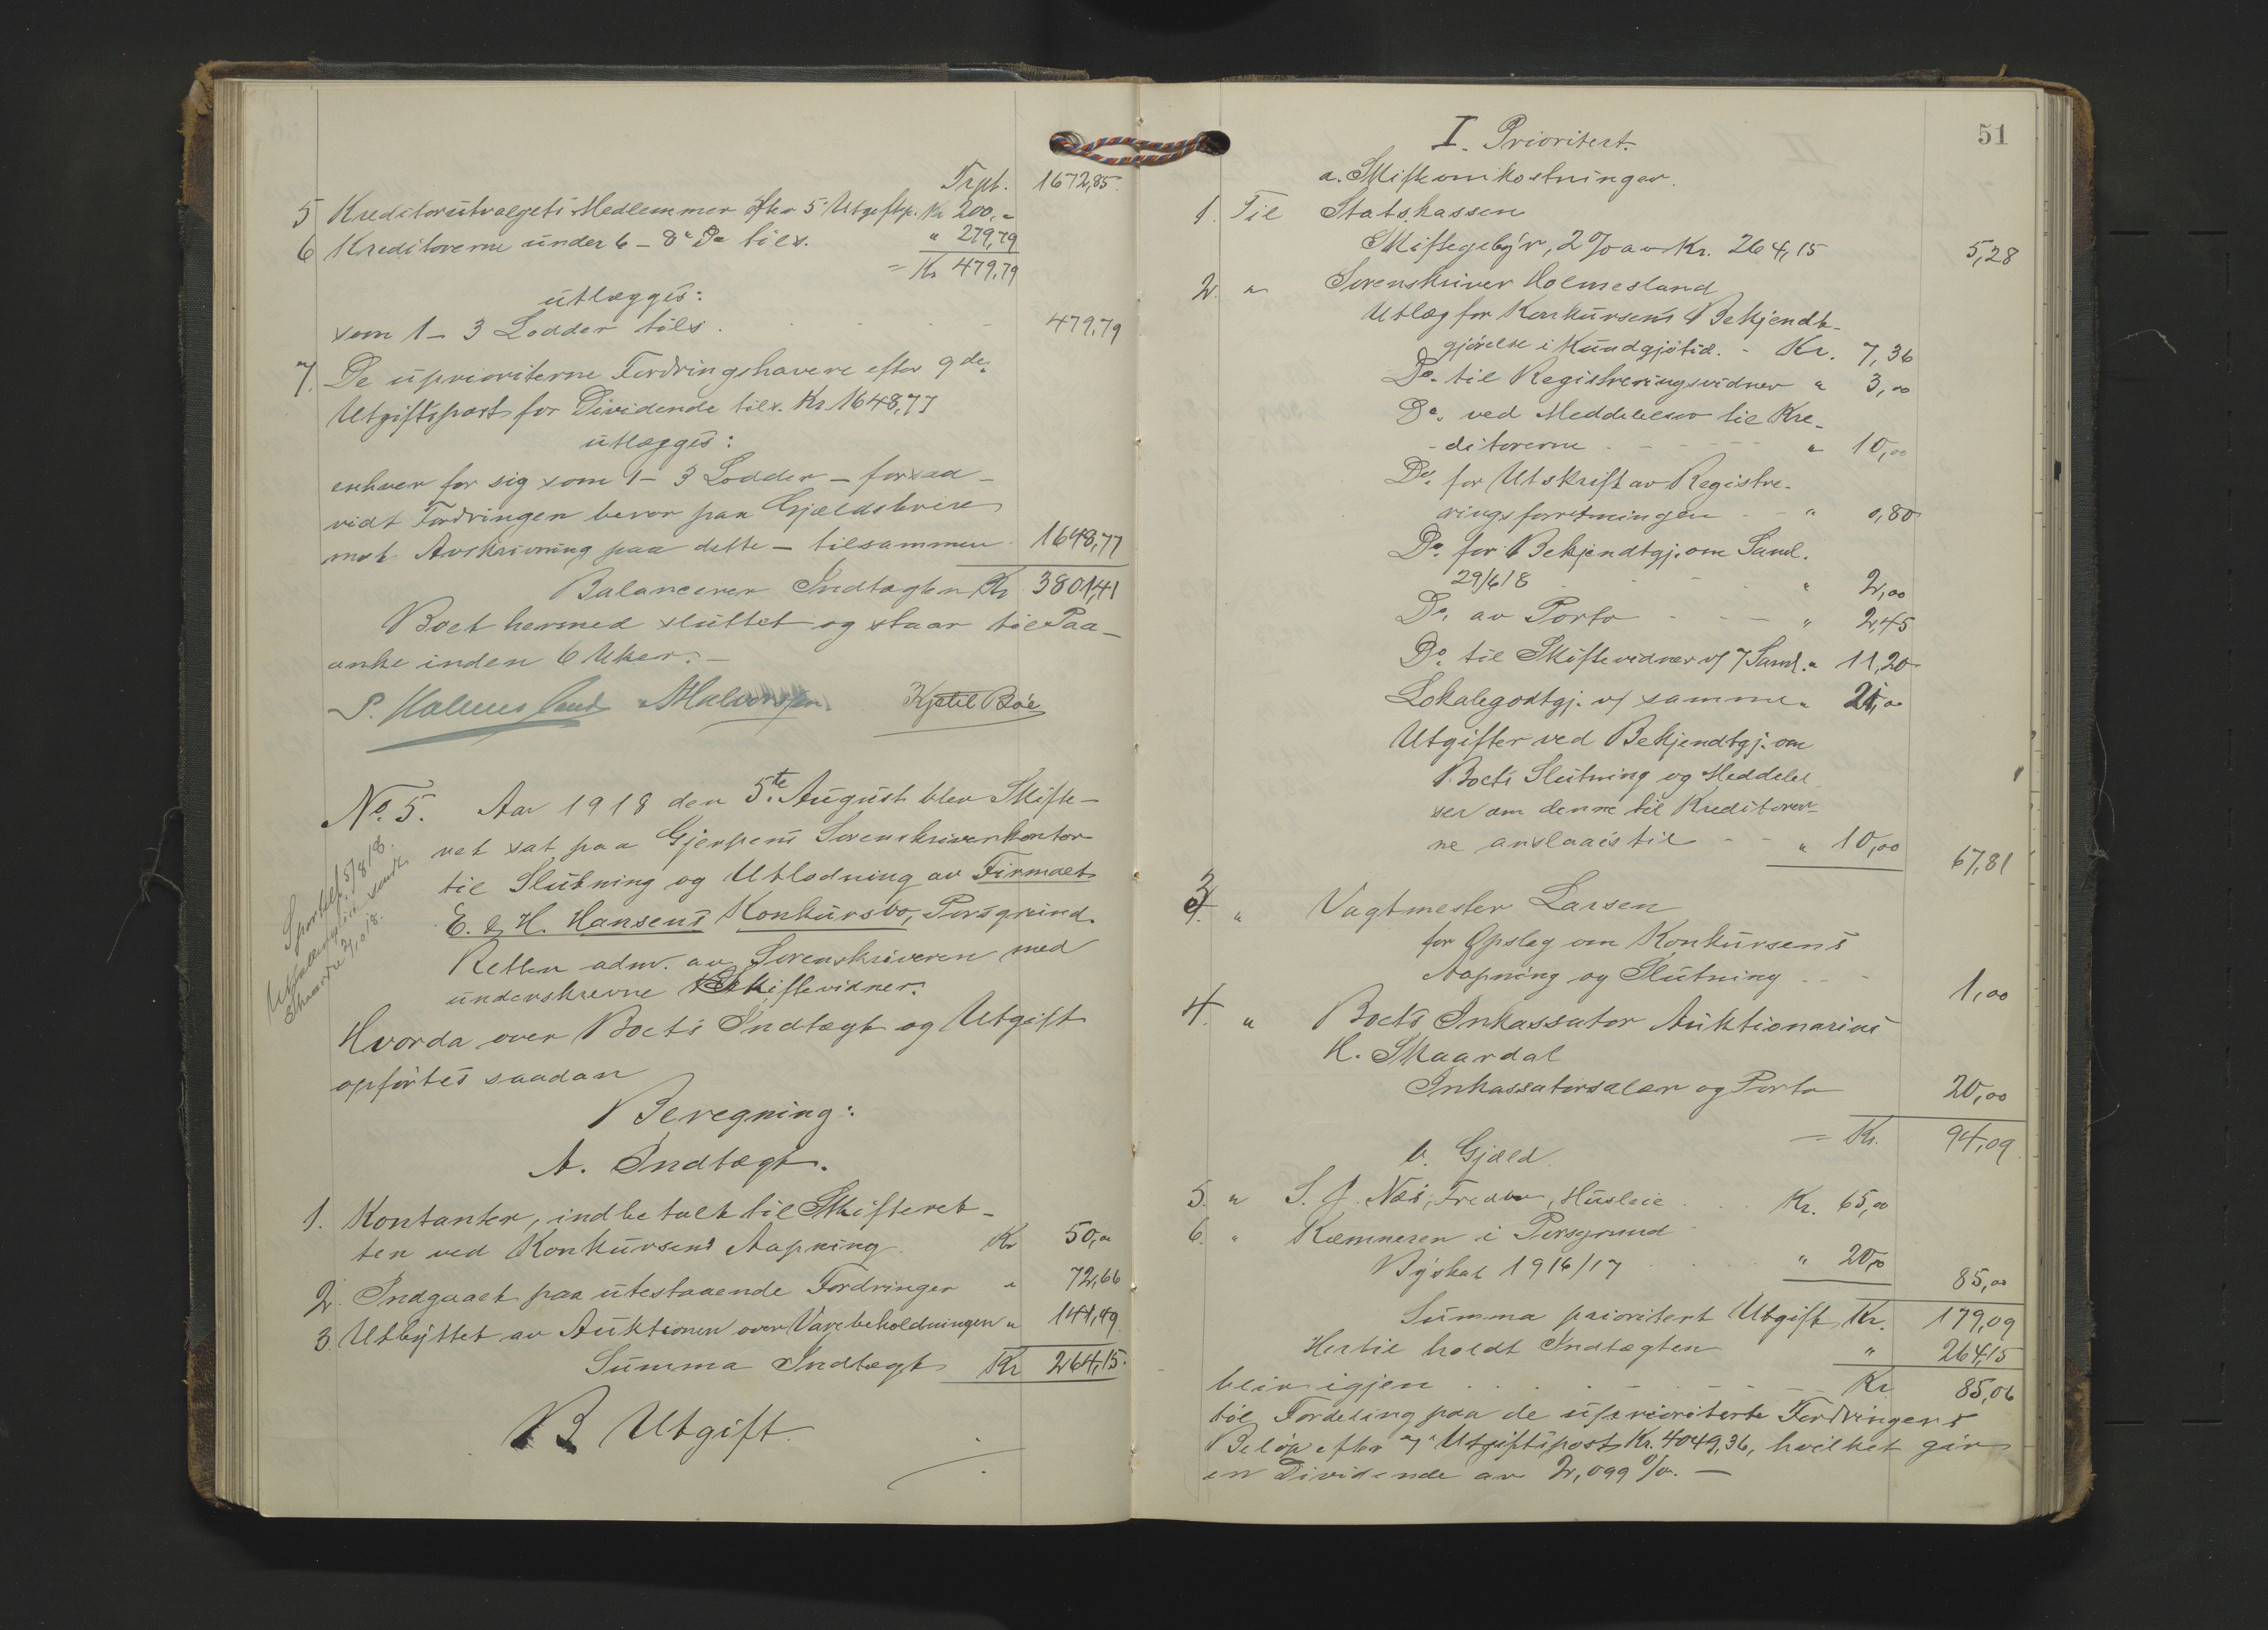 Trpt. 1672,85.
5 Kreditorutvalgets Medlemmer efter 5 Utgiftsp. Kr 200,-
6 Kreditorerne under 6 - 8de Do tils. " 279,79
= Kr 479,79
utlægges:
som 1 - 3 Lodder tils. 479,79
7. De uprioriterne Fordringshavere efter 9de
Utgiftspost for Dividende tils. Kr 1648,77
utlægges:
enhver for sig som 1 - 3 Lodder - forsaa-
vidt Fordringen beror paa Gjældsbrev
mot Avskrivning paa dette - tilsammen 1648,77
Balancerer Indtægten Kr 3801,41
Boet hermed sluttet og staar til Paa-
anke inden 6 Uker. -
P. Holmesland AHalvorssen. Kjetil Bøe
No. 5. Aar 1918 den 5te August blev Skifte-
ret sat paa Gjerpens Sorenskriverkontor
til Slutning og Utlodning av Firmaet
E. & H. Hansens Konkursbo, Porsgrund.
Retten adm. av Sorenskriveren med
underskrevne Skiftevidner.
Sportelf. 5/8 18.
Hvorda over Boets Indtægt og Utgift
opførtes saadan
Beregning:
A. Indtægt.
1. Kontanter, indbetalt til Skifteret-
ten ved Konkursens Aapning Kr 50,00
2. Indgaaet paa utestaaende Fordringer " 72,66
3 Utbyttet av Auktionen over Varebeholdningen " 141,49
Summa Indtægt Kr 264,15.
B Utgift.
51
I. Prioritert.
a. Skifteomkostninger.
1. Til Statskassen
Skiftegebyr, 2 % av Kr. 264,15 5,28
2. " Sorenskriver Holmesland
Utlæg for Konkursens Bekjendt-
gjørelse i Kundgjøtid. - Kr. 7,36
Do. til Registreringsvidner " 3,00
Do. ved Meddelelser til Kre-
ditorerne " 10,00
Do. for Utskrift av Registre-
ringsforretningen " 0,80
Do. for Bekjendtgj. om Saml.
29/6 18 " 2,00
Do. av Porto " 2,45
Do. til Skiftevidner v/ 7 Saml. " 11,20
Lokalegodtgj. v/ samme " 21,00
Utgifter ved Bekjendtgj. om
Boets Slutning og Meddelel
ser om denne til Kreditorer-
ne anslaaes til " 10,00 67,81
3. " Vagtmester Larsen
for Opslag om Konkursens
Aapning og Slutning 1,00
4. " Boets Inkassator Auktionarius
H. Skaardal
Inkassatorsalær og Porto 20,00
= Kr. 94,09
b. Gjæld.
5. " S. J. Næs, Fredbo, Husleie Kr. 65,00
6. " Kæmneren i Porsgrund
Byskat 1916/17 " 20,00 85,00
Summa prioritert Utgift Kr. 179,09
Hertil holdt Indtægten " 264,15
blir igjen Kr 85,06
til Fordeling paa de uprioriterte Fordringers
Beløp efter 7 Utgiftspost Kr. 4049,36, hvilket gir
en Dividende av 2,099 %. -